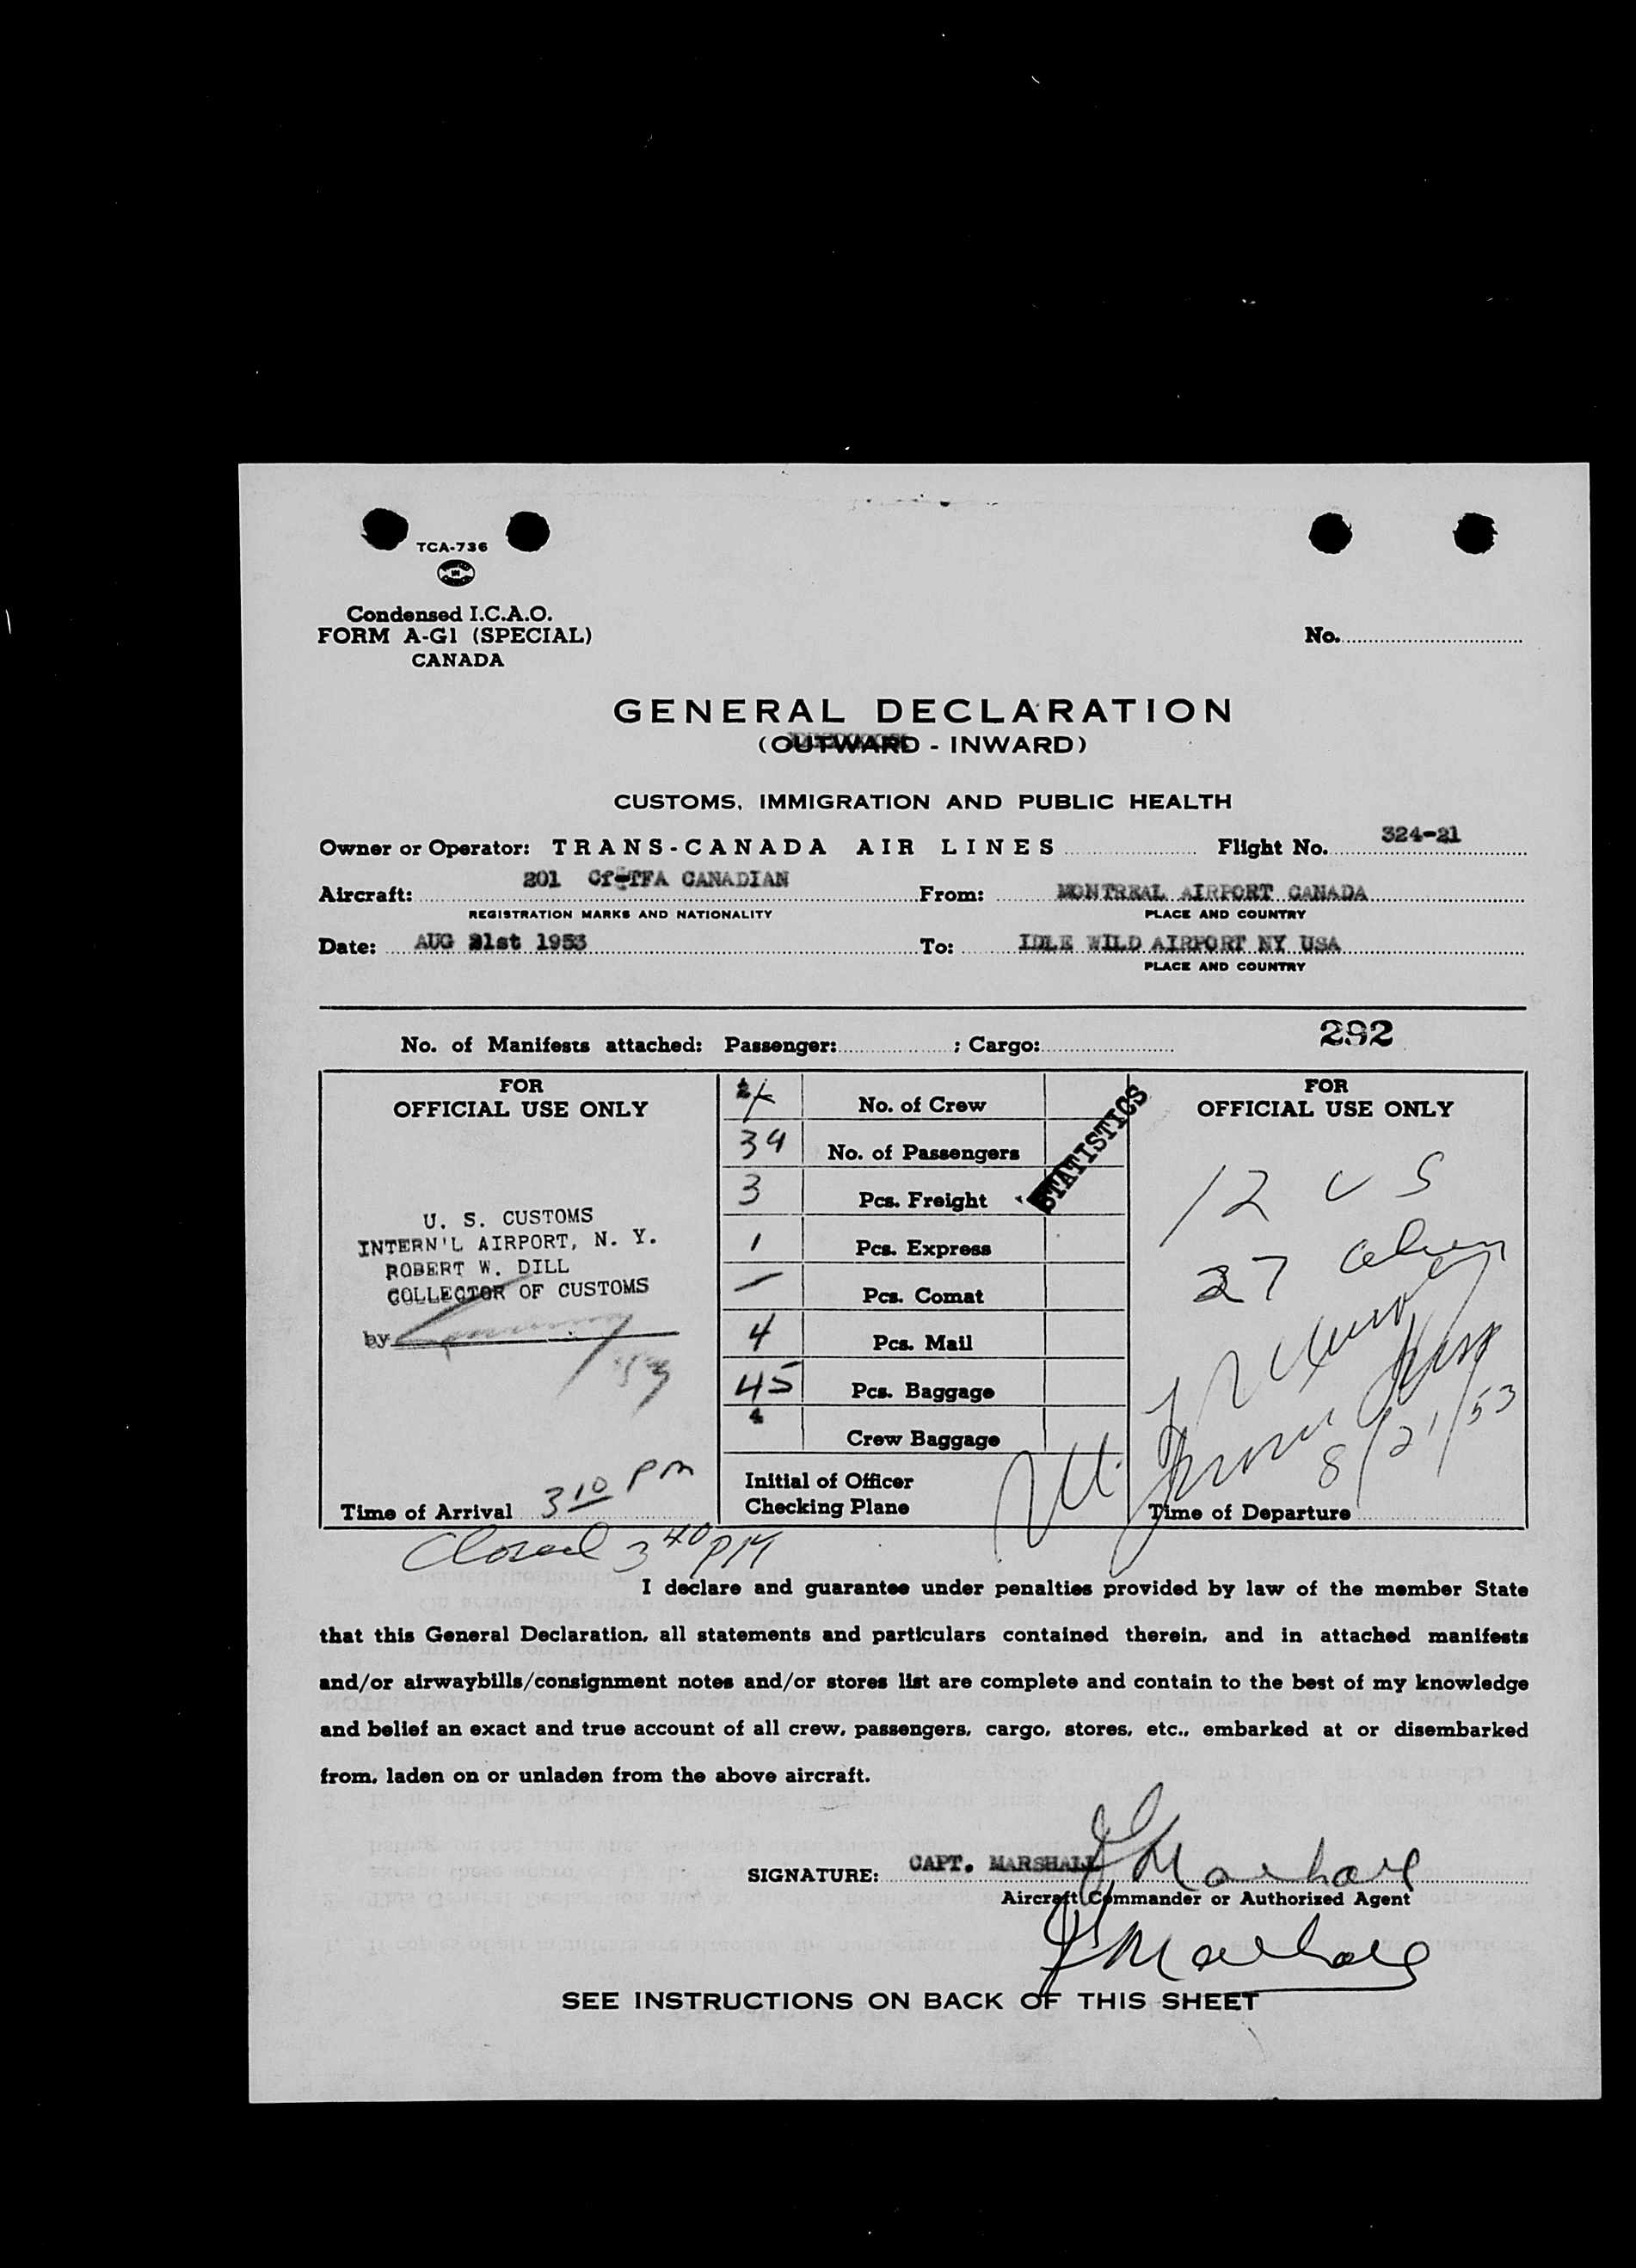 TCA-736
Condensed I.C.A.O.
FORM A-G1 (SPECIAL)
CANADA
No.
GENERAL DECLARATION
(OUTWARD - INWARD)
CUSTOMS, IMMIGRATION AND PUBLIC HEALTH
Owner or Operator: TRANS-CANADA AIR LINES Flight No. 324-21
Aircraft: 201 Cf-TFA CANADIAN From: MONTREAL AIRPORT CANADA
REGISTRATION MARKS AND NATIONALITY PLACE AND COUNTRY
Date: AUG 21st 1953 To: IDLE WILD AIRPORT NY USA
PLACE AND COUNTRY
292
No. of Manifests attached: Passenger: ; Cargo:
FOR
OFFICIAL USE ONLY
U. S. CUSTOMS
INTERN'L AIRPORT, N. Y.
ROBERT W. DILL
COLLECTOR OF CUSTOMS
by
Time of Arrival 3 10 PM
Closed 3 40 PM
No. of Crew
39 No. of Passengers
3 Pcs. Freight
1 Pcs. Express
— Pcs. Comat
4 Pcs. Mail
45 Pcs. Baggage
4 Crew Baggage
Initial of Officer
Checking Plane
STATISTICS
FOR
OFFICIAL USE ONLY
12 US
27 alien
8/21/53
Time of Departure
I declare and guarantee under penalties provided by law of the member State
that this General Declaration, all statements and particulars contained therein, and in attached manifests
and/or airwaybills/consignment notes and/or stores list are complete and contain to the best of my knowledge
and belief an exact and true account of all crew, passengers, cargo, stores, etc., embarked at or disembarked
from, laden on or unladen from the above aircraft.
SIGNATURE: CAPT. MARSHALL J Marshall
Aircraft Commander or Authorized Agent
J Marshall
SEE INSTRUCTIONS ON BACK OF THIS SHEET